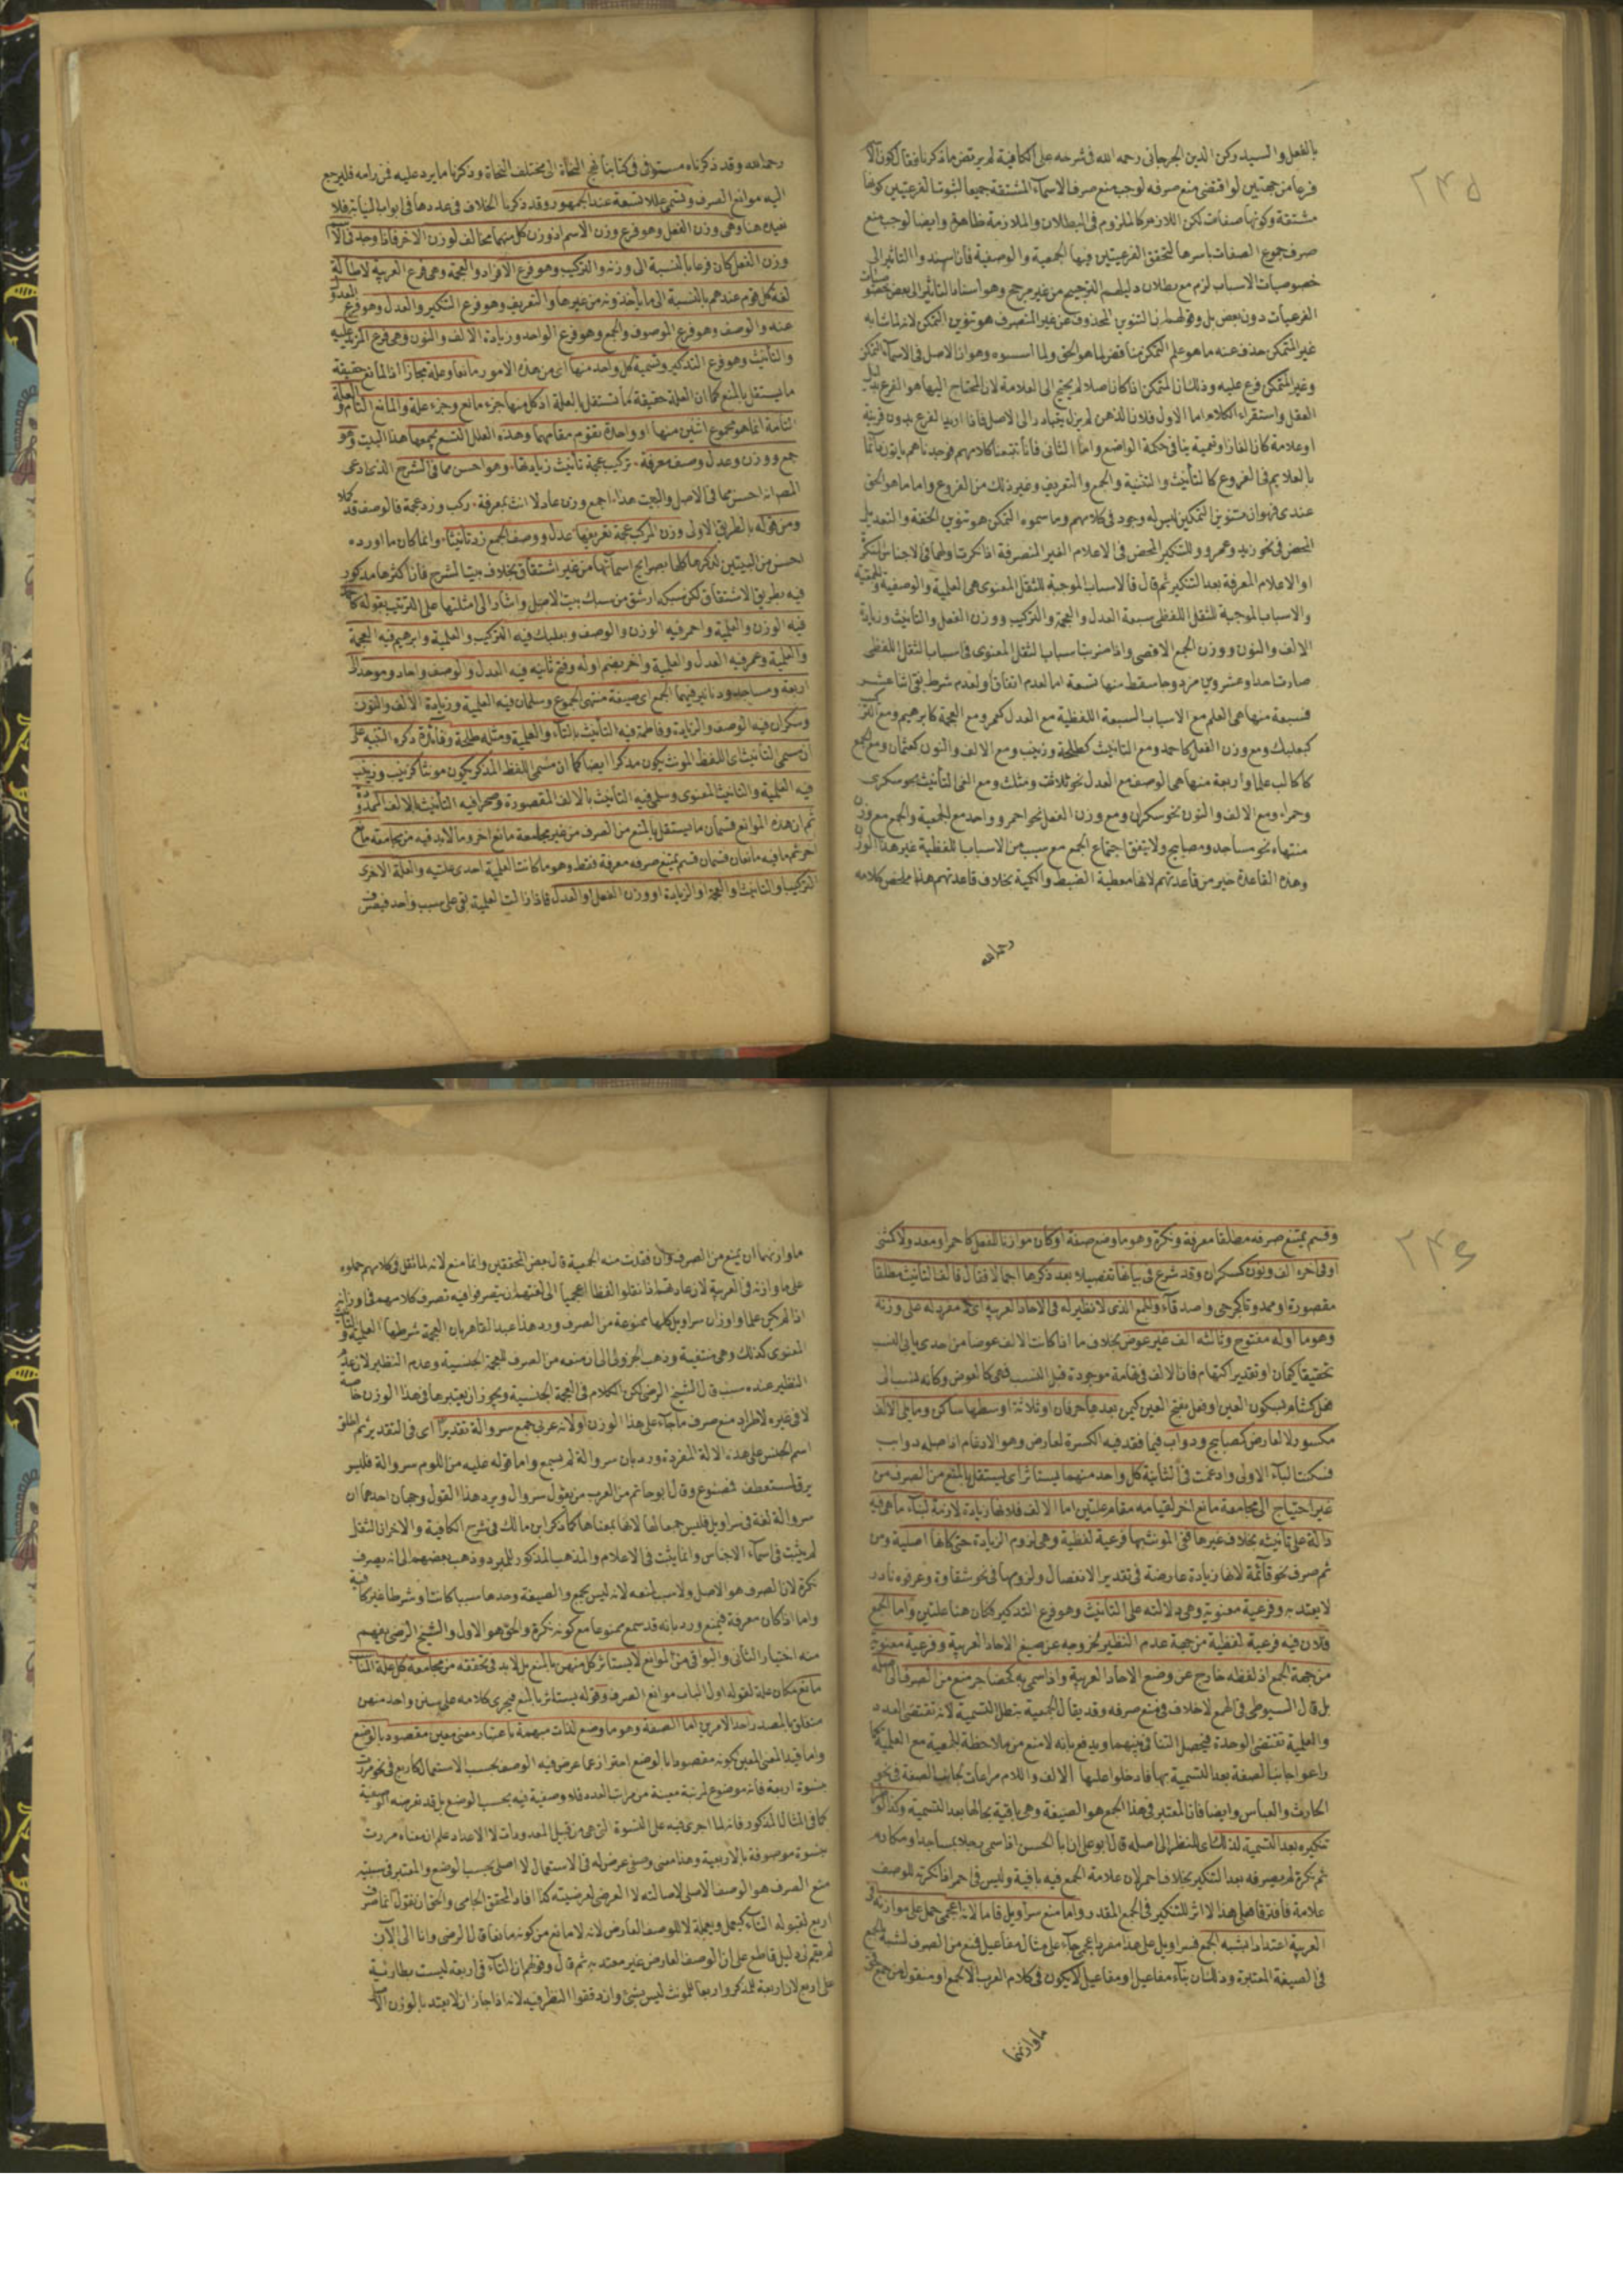 ٢٤٥
بالفعل والسيد ركن الدين الجرجاني رحمه الله في شرحه على الكافية لم يرتض ما ذكرنا فقال كون
فرعا من جهتين لو اقتضى منع صرفه لوجب منع صرف الاسماء المشتقة جميعا لثبوت الفرعيتين كونها
مشتقة وكونها صفات لكن اللازم كالملزوم في البطلان والملازمة ظاهرة وايضا لوجب منع
صرف جموع الصفات باسرها لتحقق الفرعيتين فيها الجمعية والوصفية فان اسندوا التاثير الى
خصوصيات الاسباب لزم مع بطلان دليلهم الترجيح من غير مرجح وهو اسناد التاثير الى بعض
الفرعيات دون بعض بل وقولهم ان التنوين المحذوف عن غير المنصرف هو تنوين التمكن لانه لما شابه
غير المتمكن حذف عنه ما هو علم التمكن مناقض لما هو الحق ولما اسسوه وهو ان الاصل في الاسماء التمكن
وغير المتمكن فرع عليه وذلك ان المتمكن اذا كان اصلا لم يحتج الى العلامة لان المحتاج اليها هو الفرع بدليل
العقل واستقراء الكلام اما الاول فلان الذهن لم يزل يتبادر الى الاصل فاذا اريد الفرع بدون قرينة
او علامة كان الغازا وتعمية ينافي حكمة الواضع واما الثاني فانا تتبعنا كلامهم فوجدناهم ياتون
بالعلايم في الفروع كالتأنيث والتثنية والجمع والتعريف وغير ذلك من الفروع واما ما هو الحق
عندي فهو ان تنوين التمكين ليس له وجود في كلامهم وما سموه التمكن هو تنوين الخفة والتعديل
المحض في نحو زيد وعمرو وللتنكير المحض في الاعلام الغير المنصرفة اذا نكرت ولهما في الاجناس المنكرة
او الاعلام المعرفة بعد التنكير ثم قال فالاسباب الموجبة للثقل المعنوي هي العلمية والوصفية والجمعية
والاسباب الموجبة للثقل اللفظي سبعة العدل والعجمة والتركيب ووزن الفعل والتأنيث وزيادة
الالف والنون ووزن الجمع الاقصى واذا ضربت اسباب الثقل المعنوي في اسباب الثقل اللفظي
صارت احدا وعشرين مزدوجا سقط منها تسعة اما لعدم اتفاق او لعدم شرط بقى اثنا عشر
فسبعة منها هي العلم مع الاسباب السبعة اللفظية مع العدل كعمر ومع العجمة كابرهيم ومع التركيب
كبعلبك ومع وزن الفعل كاحمد ومع التانيث كطلحة وزينب ومع الالف والنون كعثمان ومع الجمع
كاكالب علما واربعة منها هي الوصف مع العدل نحو ثلاث ومثلث ومع الفي التأنيث نحو سكرى
وحمراء ومع الالف والنون نحو سكران ومع وزن الفعل نحو احمر وواحد مع الجمعية والجمع مع وزن
منتهاه نحو مساجد ومصابيح ولا يتفق اجتماع الجمع مع سبب من الاسباب اللفظية غير هذا الوزن
وهذه القاعدة خير من قاعدتهم لانها معطية الضبط والكمية بخلاف قاعدتهم هذا ملخص كلامه
رحمه الله
رحمه الله وقد ذكرناه مستوفى في كتابنا نهج النحاة الى مختلف النحاة وذكرنا ما يرد عليه فمن رامه فليرجع
اليه موانع الصرف وتسمى عللا تسعة عند الجمهور وقد ذكرنا الخلاف في عددها في ابواب المبنيات فلا
نعيده هنا وهي وزن الفعل وهو فرع وزن الاسم اذ وزن كل منهما مخالف لوزن الاخر فاذا وجد في
وزن الفعل كان فرعا بالنسبة الى وزنه والتركيب وهو فرع الافراد والعجمة وهي فرع العربية لاصالة
لغة كل قوم عندهم بالنسبة الى ما ياخذونه من غيرها والتعريف وهو فرع التنكير والعدل وهو فرع المعدول
عنه والوصف وهو فرع الموصوف والجمع وهو فرع الواحد وزيادة الالف والنون وهي فرع المزيد عليه
والتأنيث وهو فرع التذكير وتسمية كل واحد منها اي من هذه الامور مانعا وعلة مجازا اذ المانع حقيقة
ما يستقل بالمنع كما ان العلة حقيقة ما تستقل بالعلة اذ كل منها جزء مانع وجزء علة والمانع التام والعلة
التامة انما هو مجموع اثنين منها او واحدة تقوم مقامهما وهذه العلل التسع يجمعها هذا البيت وهو
جمع ووزن وعدل وصف معرفة تركيب عجمة تأنيث زيادتها وهو احسن مما في الشرح الذي ادعى
المص انه احسن مما في الاصل والبيت هذا اجمع وزن عادلا انث بمعرفة ركب وزد عجمة فالوصف قد كملا
ومن قوله بالطريق الاول وزن المركب عجمة تعريفها عدل ووصف الجمع زد تأنيثا وانما كان ما اورده
احسن من البيتين لذكرها كلها بصرايح اسمائها من غير اشتقاق بخلاف بيت الشرح فان اكثرها مذكور
فيه بطريق الاشتقاق لكن سبكه ارشق من سبك بيت الاصل واشار الى امثلتها على الترتيب بقوله كاحمد
فيه الوزن والعلمية واحمر فيه الوزن والوصف وبعلبك فيه التركيب والعلمية وابرهيم فيه العجمة
والعلمية وعمر فيه العدل والعلمية واخر بضم اوله وفتح ثانيه فيه العدل والوصف واحاد وموحد الى
اربعة ومساجد ودنانير فيهما الجمع اي صيغة منتهى الجموع وسلمان فيه العلمية وزيادة الالف والنون
وسكران فيه الوصف والزيادة وفاطمة فيه التأنيث بالتاء والعلمية ومثله طلحة وفائدة ذكره التنبيه على
ان مسمى التأنيث اي اللفظ المونث يكون مذكرا ايضا كما ان مسمى اللفظ المذكر يكون مونثا كزينب وزينب
فيه العلمية والتانيث المعنوي وسلمى فيه التأنيث بالالف المقصورة وصحراء فيه التأنيث بالالف الممدودة
ثم ان هذه الموانع قسمان ما يستقل بالمنع من الصرف من غير مجامعة مانع اخر وما لابد فيه من مجامعة مانع
اخر ثم ما فيه مانعان قسمان قسم يمتنع صرفه معرفة فقط وهو ما كانت العلمية احدى علتيه والعلة الاخرى
التركيب او التانيث او العجمة او الزيادة او وزن الفعل او العدل فاذا زالت العلمية بقى على سبب واحد فيصرف
٢٤٦
وقسم يمتنع صرفه مطلقا معرفة ونكرة وهو ما وضع صفة او كان موازنا للفعل كاحمر او معدولا كمثنى
او في اخره الف ونون كسكران وقد شرع في بيانها تفصيلا بعد ذكرها اجمالا فقال فالف التانيث مطلقا
مقصورة او ممدودة كرجى واصدقاء والجمع الذي لا نظير له في الاحاد العربية اي لا مفرد له على وزنه
وهو ما اوله مفتوح وثالثه الف غير عوض بخلاف ما اذا كانت الالف عوضا من احدى يائي النسب
تحقيقا كيمان او تقديرا كتهام فان الالف في تهامة موجودة قبل النسب فهي كالعوض وكانه نسب الى
فعل كشام بسكون العين او فعل بفتح العين كيمن بعدها حرفان او ثلاثة اوسطها ساكن وما يلي الالف
مكسور لا لعارض كمصابيح ودواب فيما فقد فيه الكسرة لعارض وهو الادغام اذ اصله دوابب
فسكنت الباء الاولى وادغمت في الثانية كل واحد منهما يستاثر اي يستقل بالمنع من الصرف من
غير احتياج الى مجامعة مانع اخر لقيامه مقام علتين اما الالف فلانها زيادة لازمة لبناء ما هي فيه
دالة على تانيثه بخلاف غيرها ففي المونث بها فرعية لفظية وهي لزوم الزيادة حتى كانها اصلية ومن
ثم صرف نحو قائمة لانها زيادة عارضة في تقدير الانفصال ولزومها في نحو شقاوة وعرقوة نادر
لا يعتد به وفرعية معنوية وهي دلالته على التانيث وهو فرع التذكير فكان هنا علتين واما الجمع
فلان فيه فرعية لفظية من جهة عدم النظير لخروجه عن صيغ الاحاد العربية وفرعية معنوية
من جهة الجمع اذ لفظه خارج عن وضع الاحاد العربية واذا سمي به كحضاجر منع من الصرف الى اصله
بل قال السيوطي في الهمع لا خلاف في منع صرفه وقد يقال الجمعية تبطل التسمية لانه تقتضي العدد
والعلمية تقتضي الوحدة فيحصل التنافي بينهما ويدفع بانه لا منع من ملاحظة الجمعية مع العلمية كما
راعوا جانب الصفة بعد التسمية بها فادخلوا عليها الالف واللام مراعات لجانب الصفة في نحو
الحارث والعباس وايضا فان المعتبر في هذا الجمع هو الصيغة وهي باقية بحالها بعد التسمية وكذا لو
تنكيره بعد التسمية لذلك اي للنظر الى اصله قال ابو علي ان ابا الحسن اذا سمى رجلا بمساجد او مكارم
ثم نكره لم يصرفه بعد التنكير بخلاف احمر لان علامة الجمع فيه باقية وليس في احمر اذا نكرته للوصف
علامة فافترقا فعلى هذا لا اثر للتنكير في الجمع المقدر واما منع سراويل فاما لانه اعجمي حمل على موازنه في
العربية اعتدادا بشبه الجمع فسراويل على هذا مفرد اعجمي جاء على مثال مفاعيل فمنع من الصرف لشبه الجمع
في الصيغة المعتبرة وذلك ان بناء مفاعل او مفاعيل لا يكون في كلام العرب الا لجمع او منقول من جمع
ما وازنهما
ما وازنهما ان يمنع من الصرف وان فقدت منه الجمعية قال بعض المحققين وانما منع لانه لما نقل في كلامهم حملوه
على ما وازنه في العربية لان عادتهم اذا نقلوا لفظا اعجميا الى لغتهم ان يتصرفوا فيه تصرف كلامهم في وزانه
اذا لم يكن علما واوزان سراويل كلها ممنوعة من الصرف ورد هذا عبد القاهر بان العجمة شرطها العلمية والتانيث
المعنوي كذلك وهي منتفية وذهب الجزولي الى ان منعه من الصرف للعجمة الجنسية وعدم النظير لان عدم
النظير عنده سبب قال الشيخ الرضي لكن الكلام في العجمة الجنسية ويجوز ان يعتبرها في هذا الوزن خاصة
لا في غيره لاطراد منع صرف ما جاء على هذا الوزن او لانه عربي جمع سروالة تقديرا اي في التقدير ثم اطلق
اسم الجنس على هذه الالة المفردة ورد بان سروالة لم يسمع واما قوله عليه من اللوم سروالة فليس
يرق لمستعطف فمصنوع وقال ابو حاتم من العرب من يقول سروال ويرد هذا القول وجهان احدهما ان
سروالة لغة في سراويل فليس جمعا لها لانها بمعناها كما ذكر ابن مالك في شرح الكافية والاخر ان النقل
لم يثبت في اسماء الاجناس وانما يثبت في الاعلام والمذهب المذكور للمبرد وذهب بعضهم الى انه يصرف
نكرة لان الصرف هو الاصل ولا سبب لمنعه لانه ليس بجمع والصيغة وحدها سببا كانت او شرطا غير كافية
واما اذا كان معرفة فيمنع ورد بانه قد سمع ممنوعا مع كونه نكرة والحق هو الاول والشيخ الرضي يفهم
منه اختيار الثاني والبواقي من الموانع لا يستاثر كل منهن بالمنع بل لا بد في تحققه من مجامعة كل علة
مانع مكان علة لقوله اول الباب موانع الصرف وقوله يستاثر بالمنع فيجري كلامه على سنن واحد منهن
متعلق بالمصدر واحد الامرين اما الصفة وهو ما وضع لذات مبهمة باعتبار معنى معين مقصود بالوضع
واما قيد المعنى المعين بكونه مقصودا بالوضع احترازا عما عرض فيه الوصف بحسب الاستعمال كاربع في نحو مررت
بنسوة اربعة فانه موضوع لمرتبة معينة من مراتب العدد فلا وصفية فيه بحسب الوضع بل قد تعرضه الوصفية
كما في المثال المذكور فانه لما اجري فيه على النسوة التي هي من قبيل المعدودات لا الاعداد علم ان معناه مررت
بنسوة موصوفة بالاربعية وهذا معنى وصفي عرض له في الاستعمال لا اصلي بحسب الوضع والمعتبر في سببية
منع الصرف هو الوصف الاصلي لاصالته لا العرضي لعرضيته كذا افاد المحقق الجامي والحق ان نقول انما صرف
اربع لقبوله التاء كيعمل ويعملة لا للوصف العارض لانه لا مانع من كونه مانعا قال الرضي وانا الى الآن
لم يقم لي دليل قاطع على ان الوصف العارض غير معتد به ثم قال وقولهم ان التاء في اربعة ليست بطارئية
على اربع لان اربعة للمذكر واربعا للمونث ليس بشئ وان دققوا النظر فيه لانه اذا جاز ان لا يعتد بالوزن